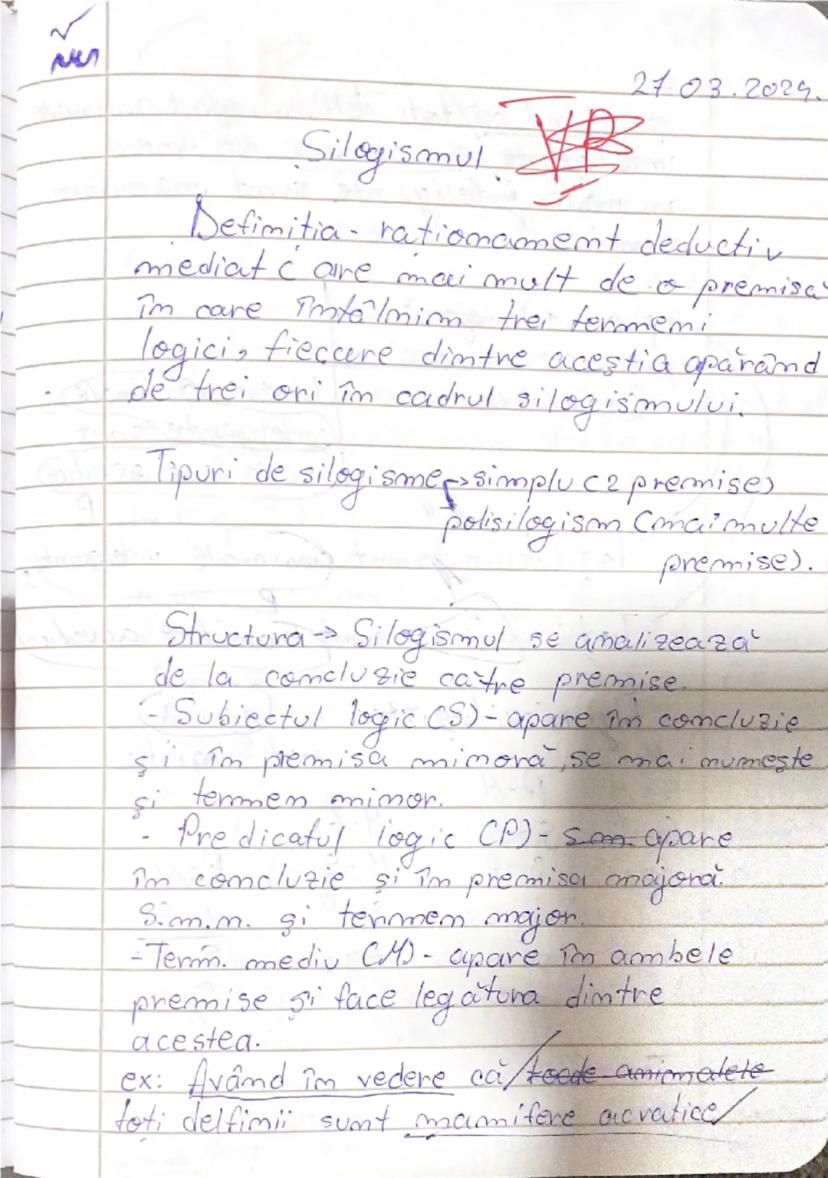 27.03.2024.
Silogismul.
Definiția - raționament deductiv
mediat care mai mult de o premisă
în care întâlnim trei termeni
logici, fiecare dintre aceștia apărând
de trei ori în cadrul silogismului.
Tipuri de silogisme → simplu (2 premise)
polisilogism (mai multe
premise).
Structura → Silogismul se analizează
de la concluzie către premise.
- Subiectul logic (S) - apare în concluzie
și în premisa minoră, se mai numește
și termen minor.
- Predicatul logic (P) - apare
în concluzie și în premisa majoră.
S.m.n. și termen major.
- Term. mediu (M) - apare în ambele
premise și face legătura dintre
acestea.
ex: Având în vedere că / toede animalele
toți delfinii sunt mamifere acvatice /